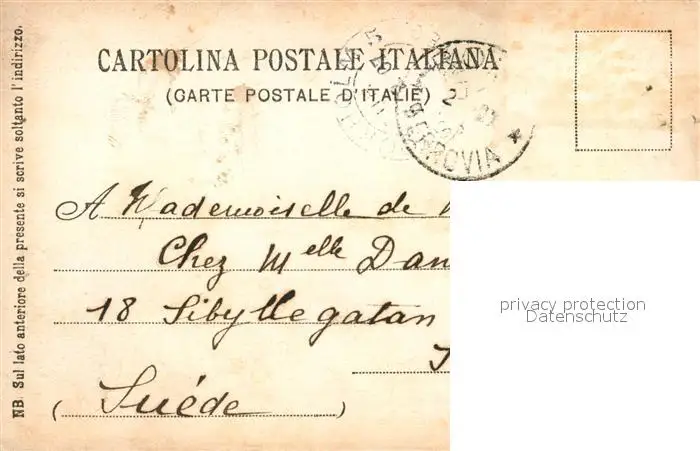 CARTOLINA POSTALE ITALIANA
(CARTE POSTALE D'ITALIE)
FERROVIA
NB. Sul lato anteriore della presente si scrive soltanto l'indirizzo.
A Mademoiselle de
Chez Melle Dan
18 Sibyllegatan
(Suéde)
privacy protection
Datenschutz